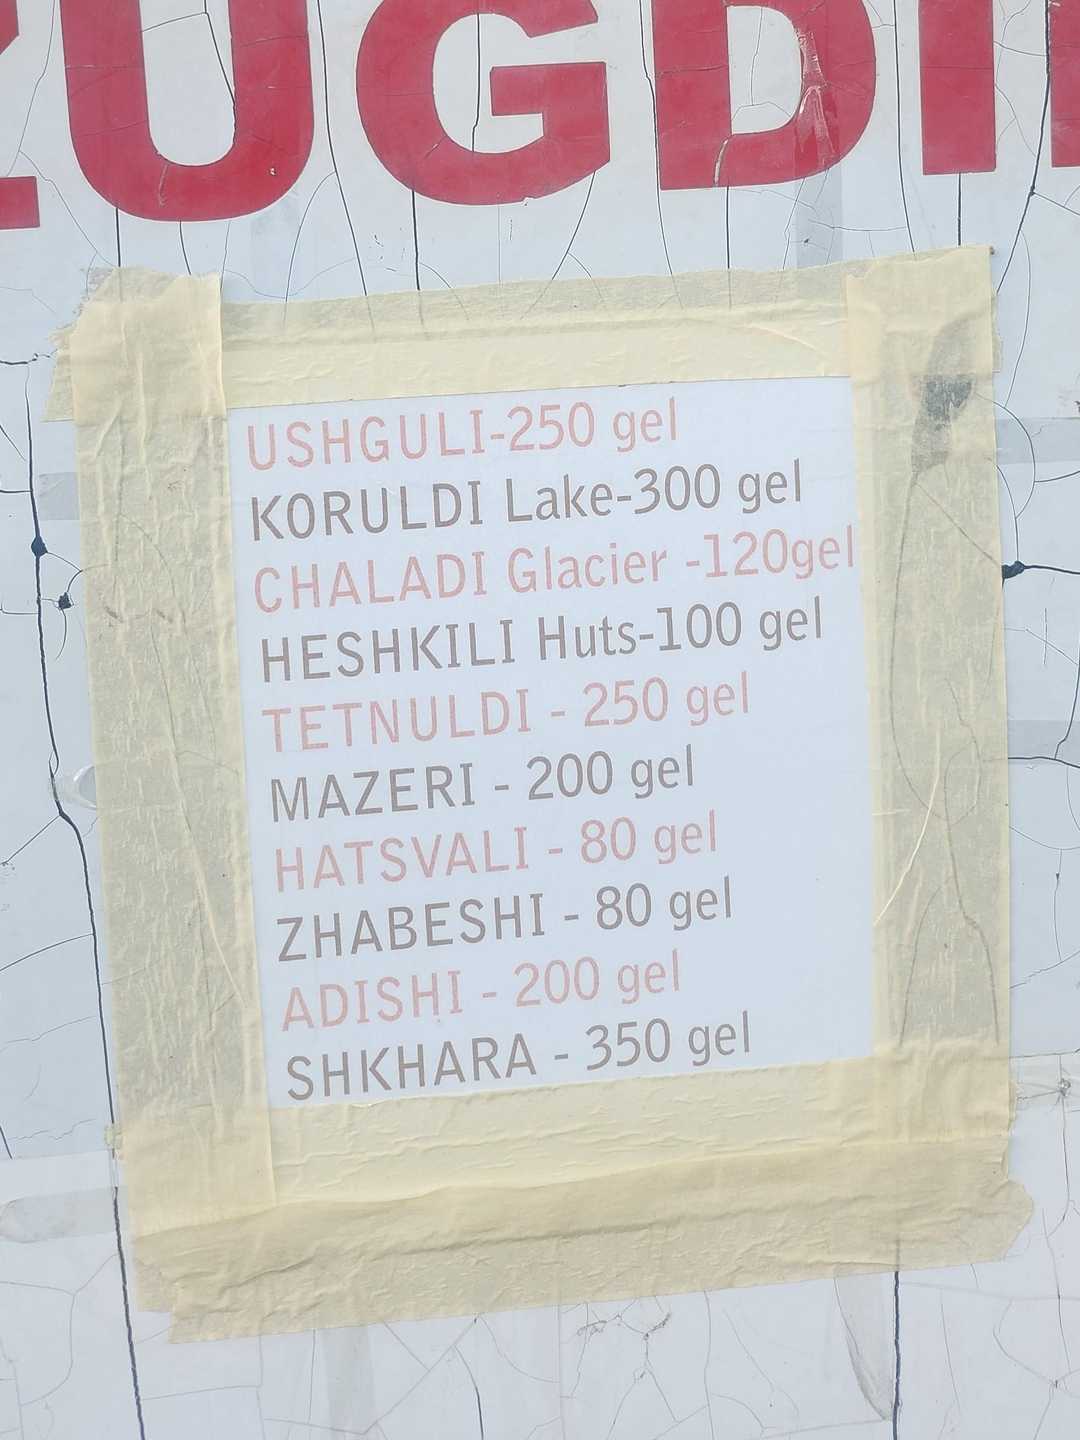 ZUGDIDI
USHGULI-250 gel
KORULDI Lake-300 gel
CHALADI Glacier -120gel
HESHKILI Huts-100 gel
TETNULDI - 250 gel
MAZERI - 200 gel
HATSVALI - 80 gel
ZHABESHI - 80 gel
ADISHI - 200 gel
SHKHARA - 350 gel